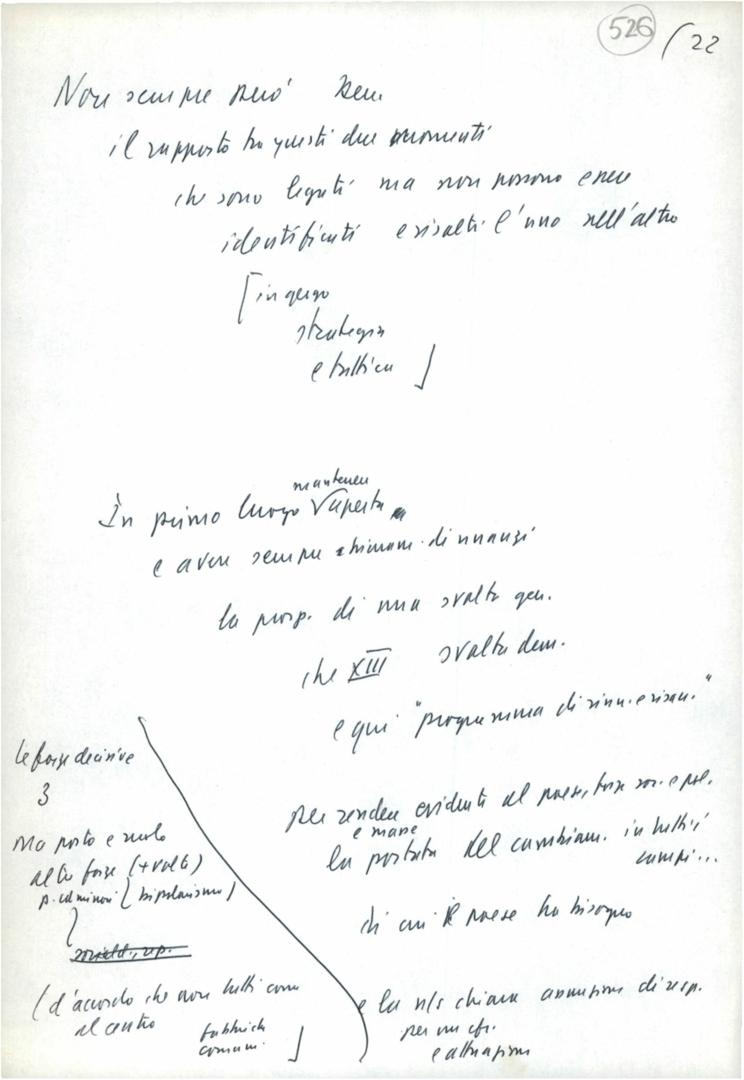 526 / 22
Non sempre però bene
il rapporto tra questi due momenti
che sono legati ma non possono essere
identificati e risolti l'uno nell'altro
[in gergo
strategia
e tattica]
mantenere
In primo luogo √ aperta
e avere sempre dinnanzi
la prosp. di una svolta gen.
che XIII svolta dem.
e qui "programma di rinn. e risan."
per rendere evidenti al paese, forze soc. e pol.
e masse
la portata del cambiam. in tutti i
campi...
di cui il paese ha bisogno
e la n/s chiara assunzione di resp.
per un
e attuazione
Le forze decisive
3
Ma posto e ruolo
altre forze (+ volte)
p. cd minori [bipolarismo]
(d'accordo che non tutti
al centro
fabbriche
comuni ]